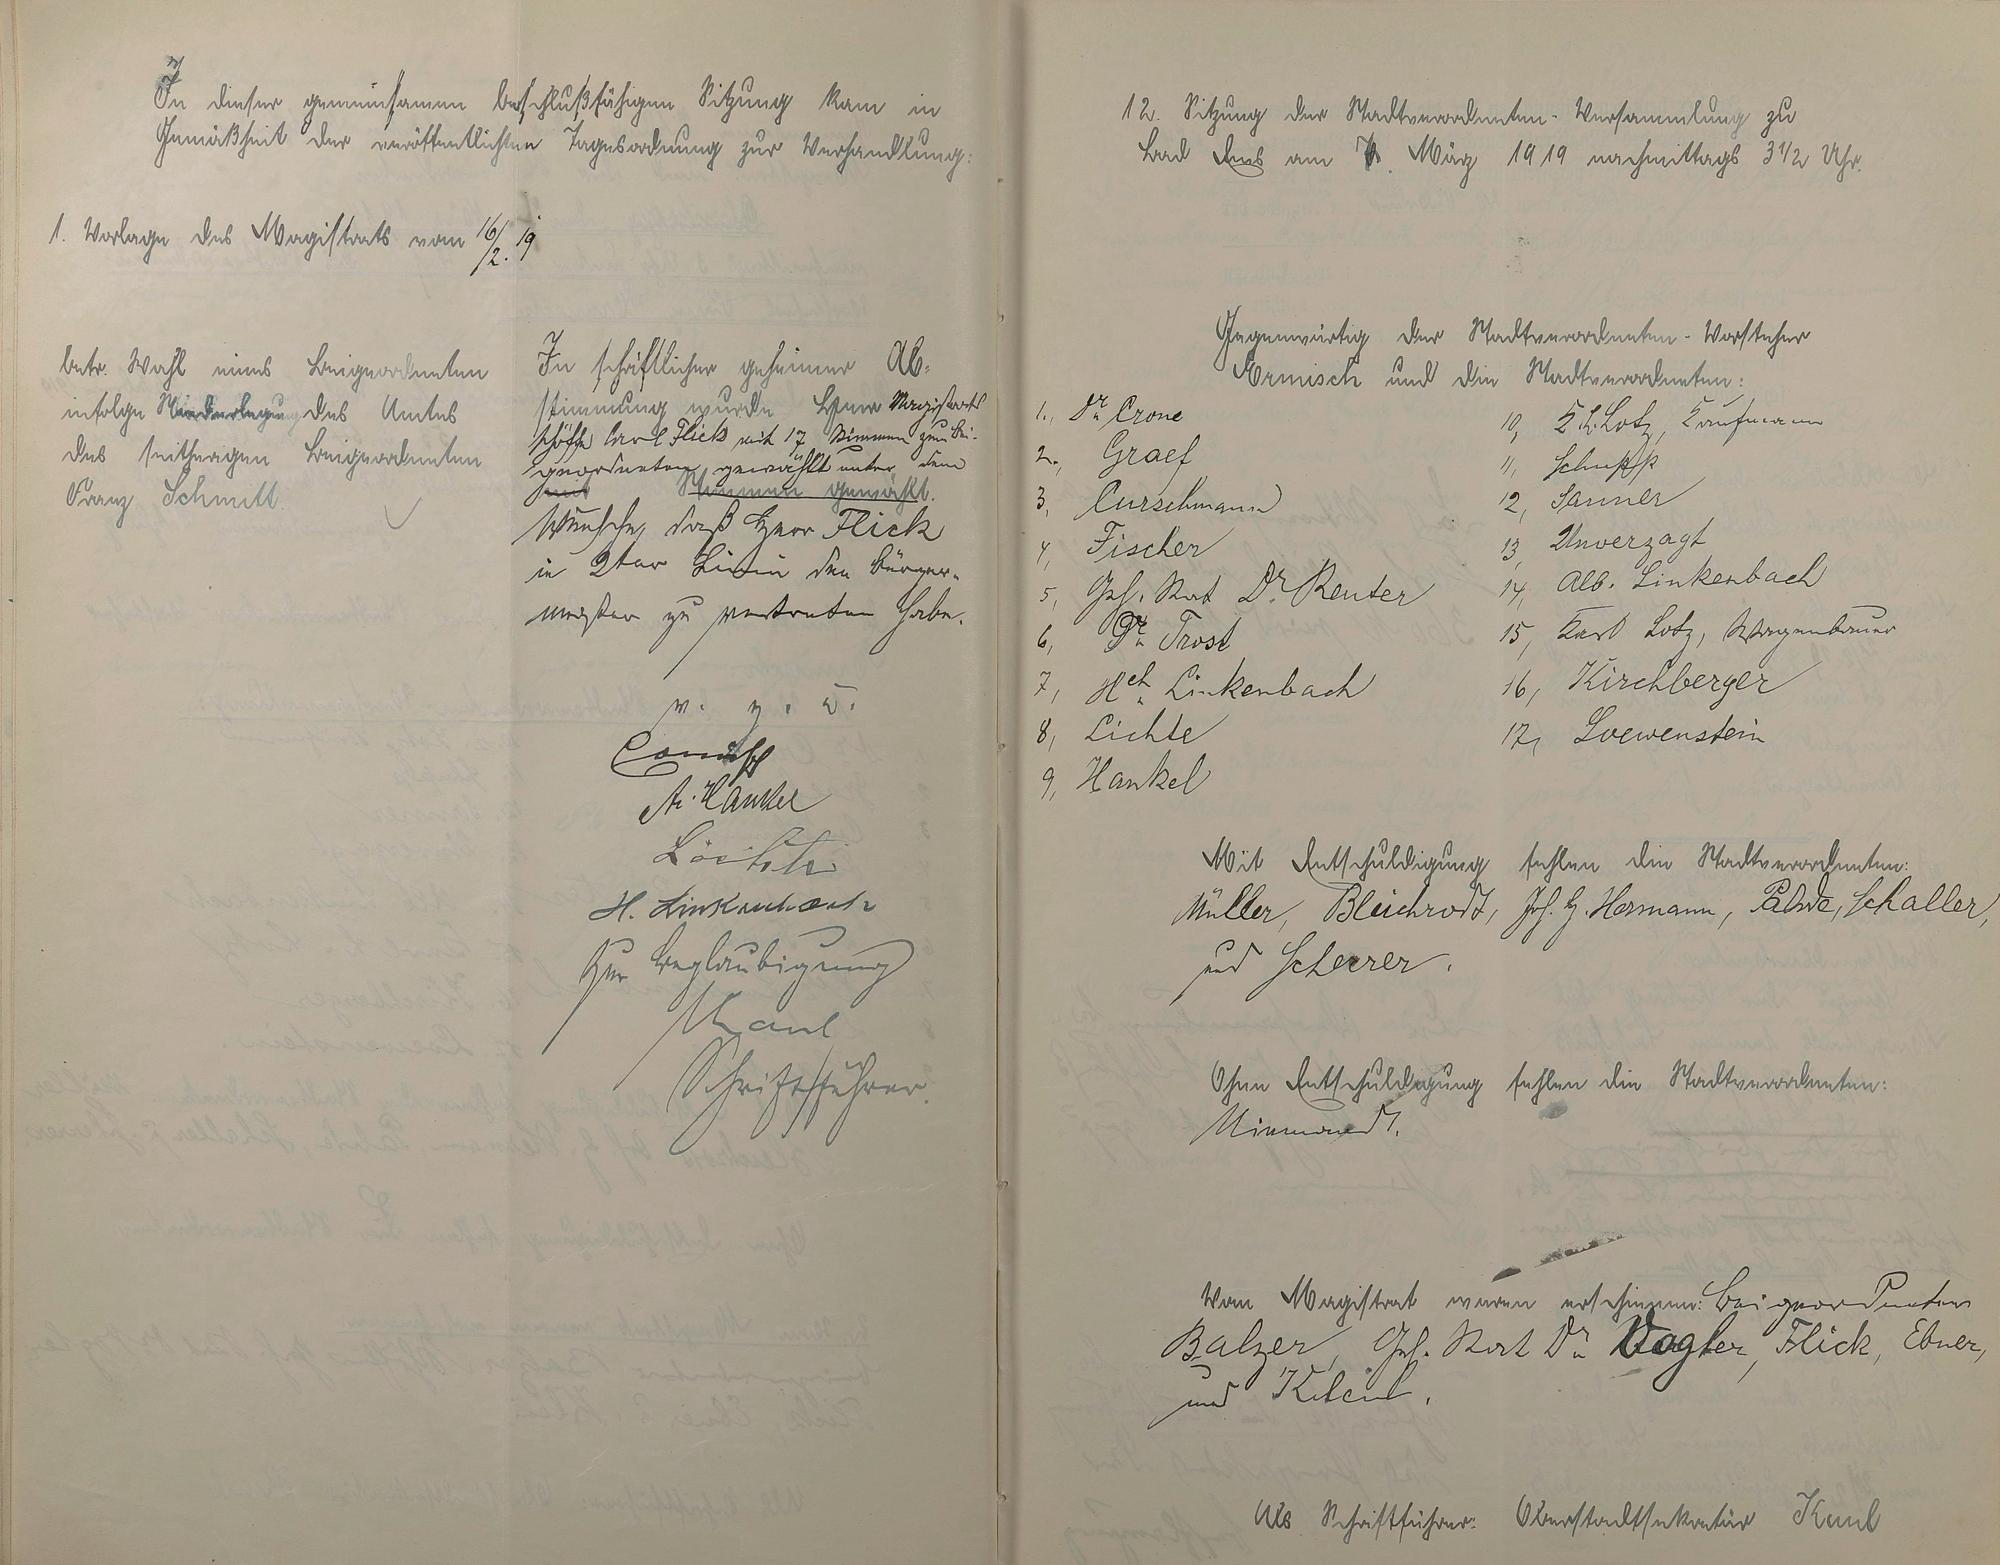 In dieser gemeinsamen beschlußfähigen Sitzung kam in
Gemäßheit der veröffentlichten Tagesordnung zur Verhandlung:
1. Vorlage des Magistrats vom 16/2. 19
betr. Wahl eines Beigeordneten
infolge Niederlegung des Amtes
des seitherigen Beigeordneten
Franz Schmitt.
In schriftlicher geheimer Ab-
stimmung wurde Herr Magistrats
schöffe Carl Flick mit 17 Stimmen zum Bei-
geordneten gewählt unter dem
mit Stimmen gewählt.
Wunsche, daß Herr Flick
in 2ter Linie den Bürger-
meister zu vertreten habe.
v. g. u.
Ermisch
A. Hankel
Lichte
H. Linkenbach
Zur Beglaubigung
Kaul
Schriftführer.
12. Sitzung der Stadtverordneten-Versammlung zu
Bad Ems am März 1919 nachmittags 3 1/2 Uhr.
Gegenwärtig der Stadtverordneten-Vorsteher
Ermisch und die Stadtverordneten:
1., Dr. Crone
2., Graef
3, Curschmann
4, Fischer
5, Geh. Rat Dr. Reuter
6, Dr. Trost
7, Hch. Linkenbach
8, Lichte
9, Hankel
10, K. L. Lotz, Kaufmann
11, Schupp
12, Sanner
13, Unverzagt
14, Alb. Linkenbach
15, Karl Lotz, Wagenbauer
16, Kirchberger
17, Loewenstein
Mit Entschuldigung fehlen die Stadtverordneten:
Müller, Bleichrodt, Jos. H. Hermann, Schaller,
und Scherrer.
Ohne Entschuldigung fehlen die Stadtverordneten:
Niemand.
Vom Magistrat waren erschienen: Beigeordneter
Balzer, Geh. Rat Dr. Vogler, Flick, Ebner,
und
Als Schriftführer: Oberstadtsekretär Kaul